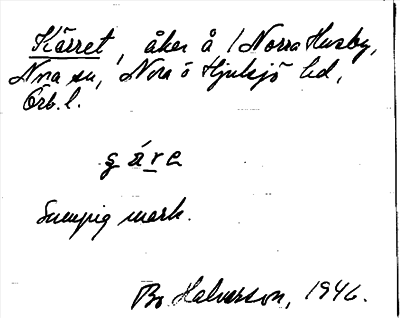 Kärret, åker å 1 Norra Husby,
Nna sn, Nora o Hjulsjö hd,
Örb. l.
Sumpig mark.
Bo Halvarson, 1946.